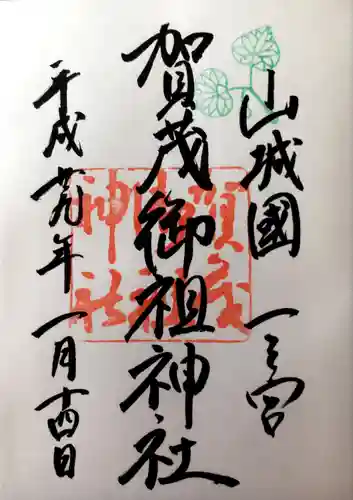 山城國 一之宮
賀茂御祖神社
平成廿九年 一月十四日
賀茂御祖神社